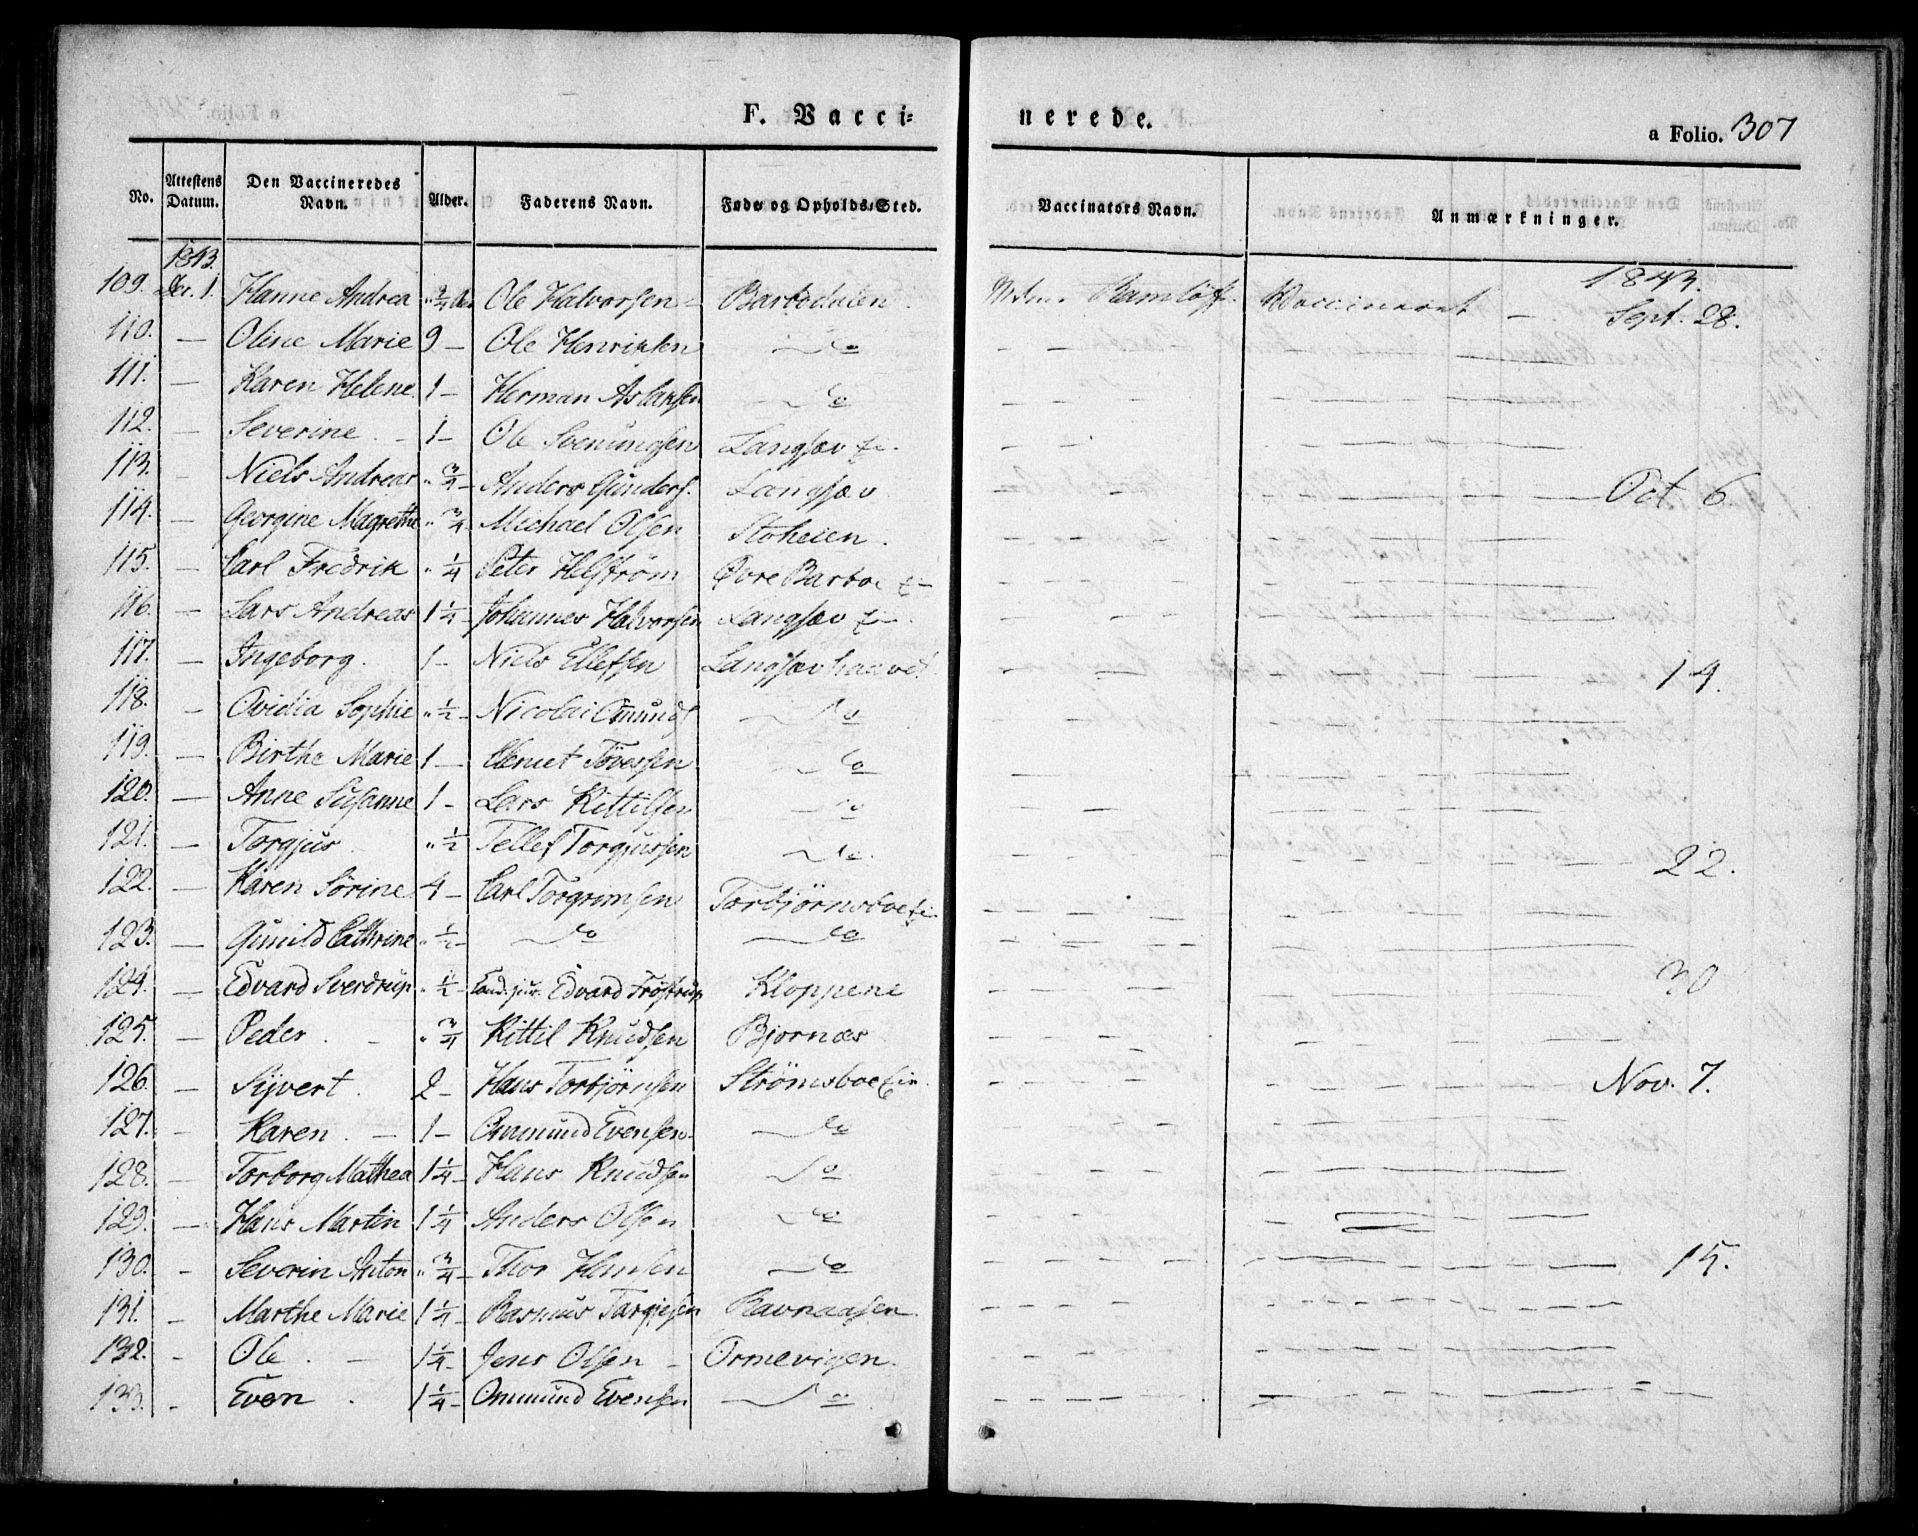 F. Vacci=
nerede.
a Folio. 307
No. Attestens Datum. Den Vaccineredes Navn. Alder. Faderens Navn. Føde og Opholds-Sted. Vaccinators Navn. Anmærkninger.
1843. 1843.
109. Dec. 1. Hanne Andrea " 3/4 Ole Halvorsen Barbodalen. Ramløff. Vaccineret — Sept. 28.
110. — Oline Marie 9 — Ole Henriksen do
111. — Karen Helene 1 — Herman Aslaksen do
112. — Severine 1 — Ole Svenungsen Langsæv
113. — Niels Andreas " 3/4 Anders Gunders. Langsæv Oct. 6.
114. — Georgine Magrethe " 3/4 Michael Olsen Stoheien.
115. — Carl Fredrik " 1/4 Peter Helström Øvre Barboe
116. — Lars Andreas 1 1/4 Johannes Halvorsen Langsæv
117. — Ingeborg. 1 — Niels Ellefsen Langsævhaavet 14.
118. — Ovidia Sophie " 1/2 Nicolai Omunds do
119. — Birthe Marie 1 — Clemet Tövessen do
120. — Anne Susanne 1 — Lars Kittilsen do
121. — Torgjus " 1/2 Tellef Torgjussen do 22.
122. — Karen Sörine 4 — Carl Torgrimsen Torbjörnsboe
123. — Gunild Cathrine " 1/2 do do
124. — Edvard Sverdrup " 1/2 Cand. jur. Edvard Fröstrup Kloppene 30
125. — Peder. " 3/4 Kittil Knudsen Bjornæs
126. — Sijvert. 2 — Hans Torbjörnsen Strömsboe Nov. 7.
127. — Karen. 1 — Ommund Evensen do
128. — Torborg Mathea 1 1/4 Hans Knudsen do
129. — Hans Martin 1 1/4 Anders Olsen do
130. — Severin Anton " 3/4 Thor Hansen do 15.
131. — Marthe Marie 1 1/4 Rasmus Targjesen Ravnaasen.
132. — Ole. 1 1/4 Jens Olsen Ormevigen.
133. — Even 1 1/4 Ommund Evensen do